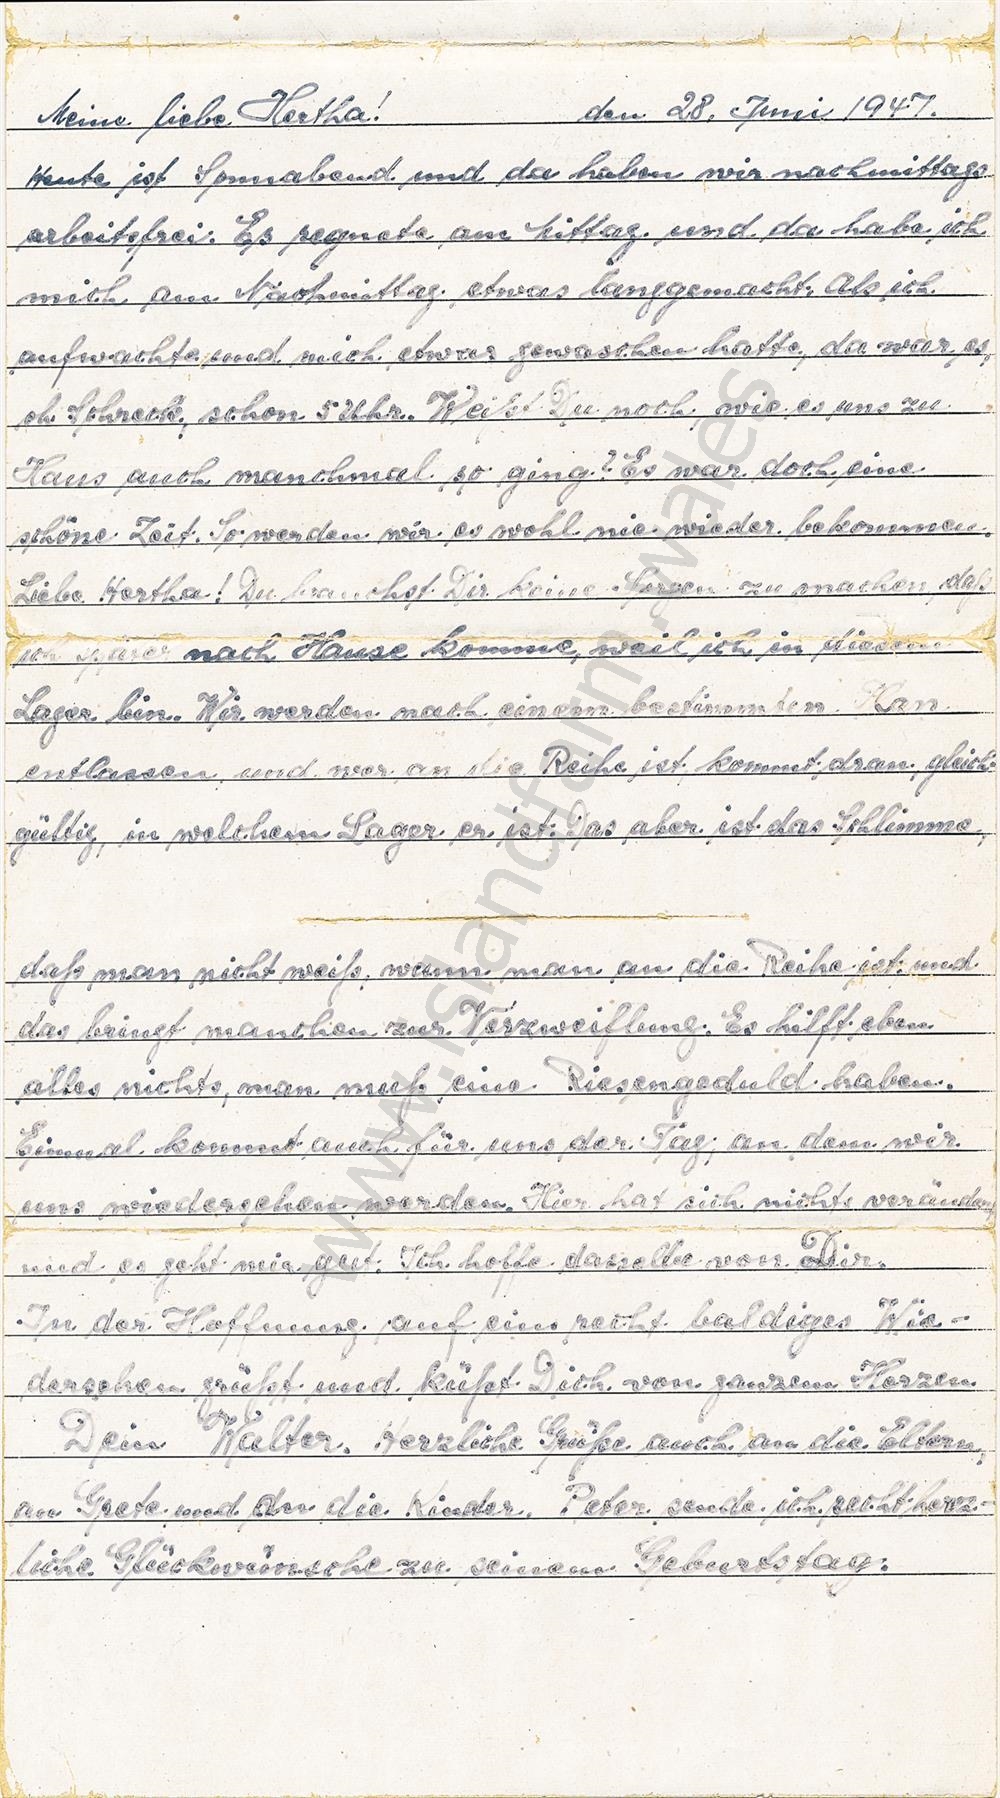 Meine liebe Hertha! den 28. Juni 1947.
Heute ist Sonnabend und da haben wir nachmittags
arbeitsfrei. Es regnete am Mittag und da habe ich
mich am Nachmittag etwas langgemacht. Als ich
aufwachte und mich etwas gewaschen hatte, da war es,
oh Schreck, schon 5 Uhr. Weißt Du noch wie es uns zu
Haus auch manchmal so ging? Es war doch eine
schöne Zeit. So werden wir es wohl nie wieder bekommen.
Liebe Hertha! Du brauchst Dir keine Sorgen zu machen, daß
ich später nach Hause komme, weil ich in diesem
Lager bin. Wir werden nach einem bestimmten Plan
entlassen und wer an die Reihe ist kommt dran, gleich-
gültig, in welchem Lager er ist. Das aber ist das Schlimme,
daß man nicht weiß, wann man an die Reihe ist und
das bringt manchen zur Verzweiflung. Es hilft eben
alles nichts, man muß eine Riesengeduld haben.
Einmal kommt auch für uns der Tag, an dem wir
uns wiedersehen werden. Hier hat sich nichts verändert
und es geht mir gut. Ich hoffe dasselbe von Dir.
In der Hoffnung auf ein recht baldiges Wie-
dersehen grüßt und küßt Dich von ganzem Herzen
Dein Walter. Herzliche Grüße auch an die Eltern,
an Grete und an die Kinder. Peter sende ich recht herz-
liche Glückwünsche zu seinem Geburtstag.
www.islandfarm.wales